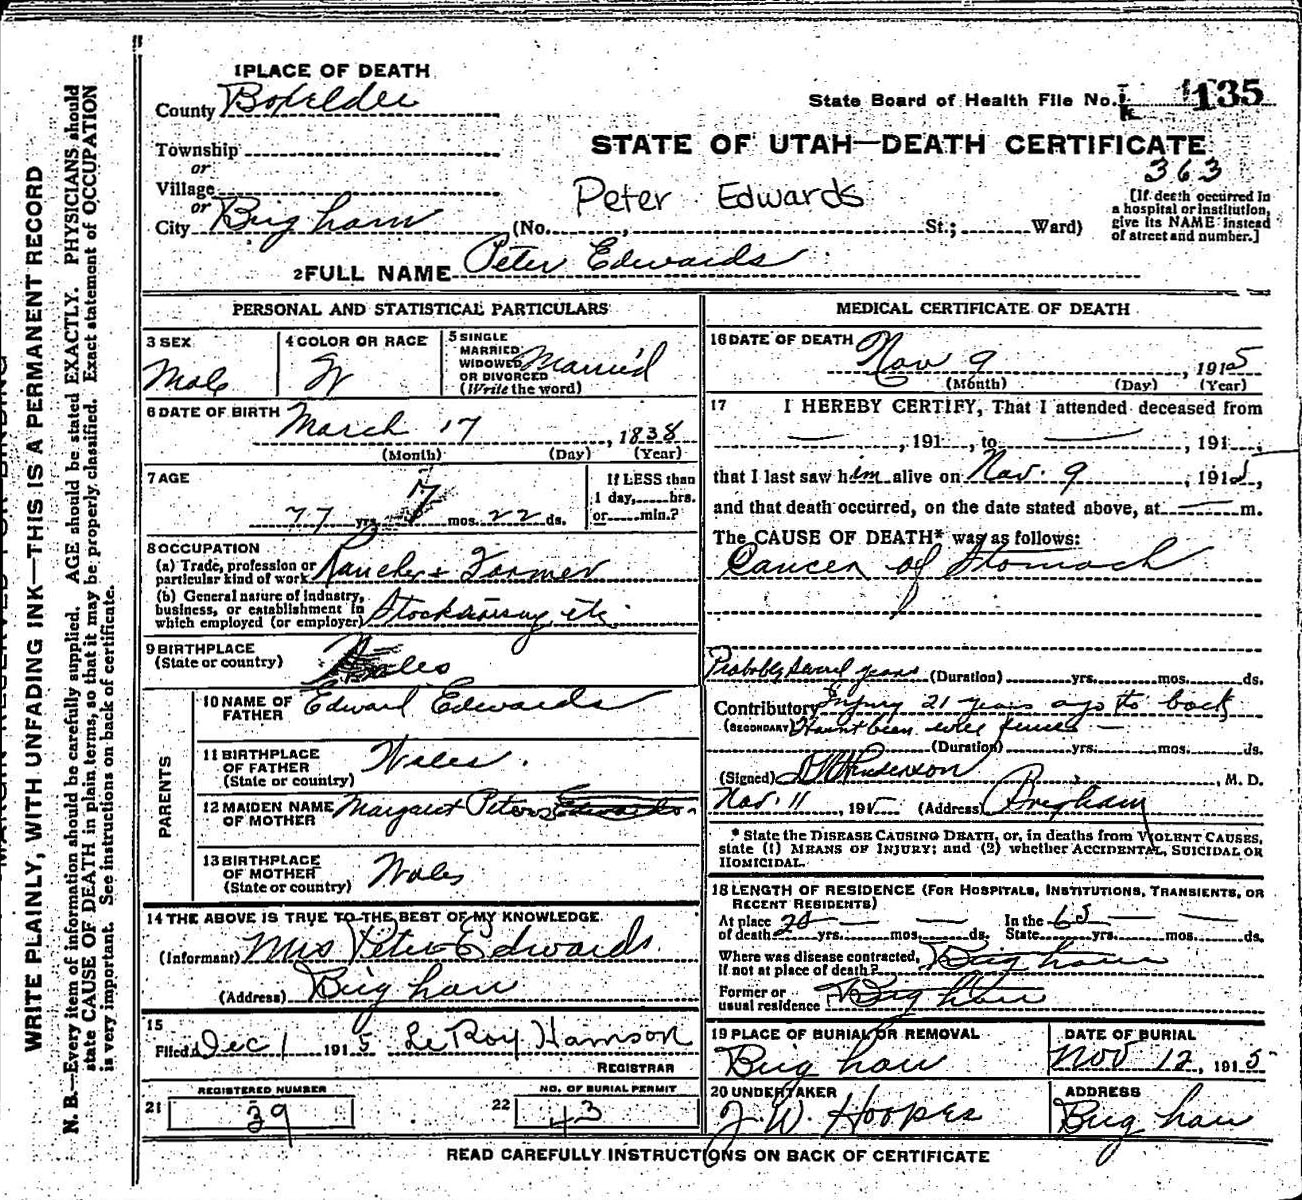 WRITE PLAINLY, WITH UNFADING INK—THIS IS A PERMANENT RECORD
N. B.—Every item of information should be carefully supplied. AGE should be stated EXACTLY. PHYSICIANS should
state CAUSE OF DEATH in plain terms, so that it may be properly classified. Exact statement of OCCUPATION
is very important. See instructions on back of certificate.
1 PLACE OF DEATH
County Boxelder
State Board of Health File No. 135
Township
or
Village
or
City Brigham
STATE OF UTAH—DEATH CERTIFICATE
363
Peter Edwards
(No. , St.; Ward)
[If death occurred in
a hospital or institution,
give its NAME instead
of street and number.]
2 FULL NAME Peter Edwards
PERSONAL AND STATISTICAL PARTICULARS
3 SEX
Male
4 COLOR OR RACE
W
5 SINGLE
MARRIED
WIDOWED
OR DIVORCED
(Write the word)
Married
6 DATE OF BIRTH
March 17, 1838
(Month) (Day) (Year)
7 AGE
77 yrs. 7 mos. 22 ds.
If LESS than
1 day, hrs.
or min.?
8 OCCUPATION
(a) Trade, profession or
particular kind of work Rancher & Farmer
(b) General nature of industry,
business, or establishment in
which employed (or employer) etc.
9 BIRTHPLACE
(State or country) Wales
PARENTS
10 NAME OF
FATHER Edward Edwards
11 BIRTHPLACE
OF FATHER
(State or country) Wales.
12 MAIDEN NAME
OF MOTHER Margaret Peters
13 BIRTHPLACE
OF MOTHER
(State or country) Wales
14 THE ABOVE IS TRUE TO THE BEST OF MY KNOWLEDGE
(Informant) Mrs Peter Edwards.
(Address) Brigham
15
Filed Dec 1 1915 LeRoy Harrison
REGISTRAR
REGISTERED NUMBER
21 39
NO. OF BURIAL PERMIT
22 43
MEDICAL CERTIFICATE OF DEATH
16 DATE OF DEATH
Nov 9, 1915
(Month) (Day) (Year)
17 I HEREBY CERTIFY, That I attended deceased from
—, 191 , to —, 191 ,
that I last saw him alive on Nov. 9, 1915,
and that death occurred, on the date stated above, at — m.
The CAUSE OF DEATH* was as follows:
Cancer of Stomach
Probably several years (Duration) yrs. mos. ds.
Contributory Injury 21 years ago to back
(SECONDARY) Hasn't been well since —
(Duration) yrs. mos. ds.
(Signed) Henderson, M. D.
Nov. 11, 191 (Address) Brigham
* State the DISEASE CAUSING DEATH, or, in deaths from VIOLENT CAUSES,
state (1) MEANS OF INJURY; and (2) whether ACCIDENTAL, SUICIDAL OR
HOMICIDAL.
18 LENGTH OF RESIDENCE (FOR HOSPITALS, INSTITUTIONS, TRANSIENTS, OR
RECENT RESIDENTS)
At place
of death yrs. — mos. — ds.
In the
State 65 yrs. — mos. — ds.
Where was disease contracted,
if not at place of death? Brigham
Former or
usual residence Brigham
19 PLACE OF BURIAL OR REMOVAL
Brigham
DATE OF BURIAL
Nov 12, 1915
20 UNDERTAKER
J. W. Hoopes
ADDRESS
Brigham
READ CAREFULLY INSTRUCTIONS ON BACK OF CERTIFICATE